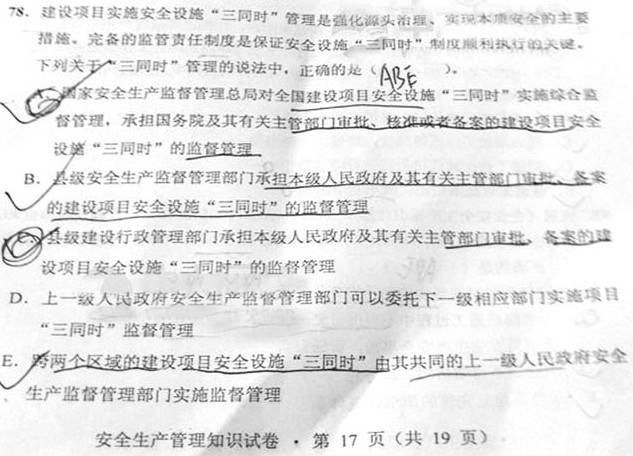 78. 建设项目实施安全设施“三同时”管理是强化源头治理、实现本质安全的主要
措施。完备的监管责任制度是保证安全设施“三同时”制度顺利执行的关键。
下列关于“三同时”管理的说法中，正确的是（ABE）。
A. 国家安全生产监督管理总局对全国建设项目安全设施“三同时”实施综合监
督管理，承担国务院及其有关主管部门审批、核准或者备案的建设项目安全
设施“三同时”的监督管理
B. 县级安全生产监督管理部门承担本级人民政府及其有关主管部门审批、备案
的建设项目安全设施“三同时”的监督管理
C. 县级建设行政管理部门承担本级人民政府及其有关主管部门审批、备案的建
设项目安全设施“三同时”的监督管理
D. 上一级人民政府安全生产监督管理部门可以委托下一级相应部门实施项目
“三同时”监督管理
E. 跨两个区域的建设项目安全设施“三同时”由其共同的上一级人民政府安全
生产监督管理部门实施监督管理
安全生产管理知识试卷 · 第 17 页（共 19 页）